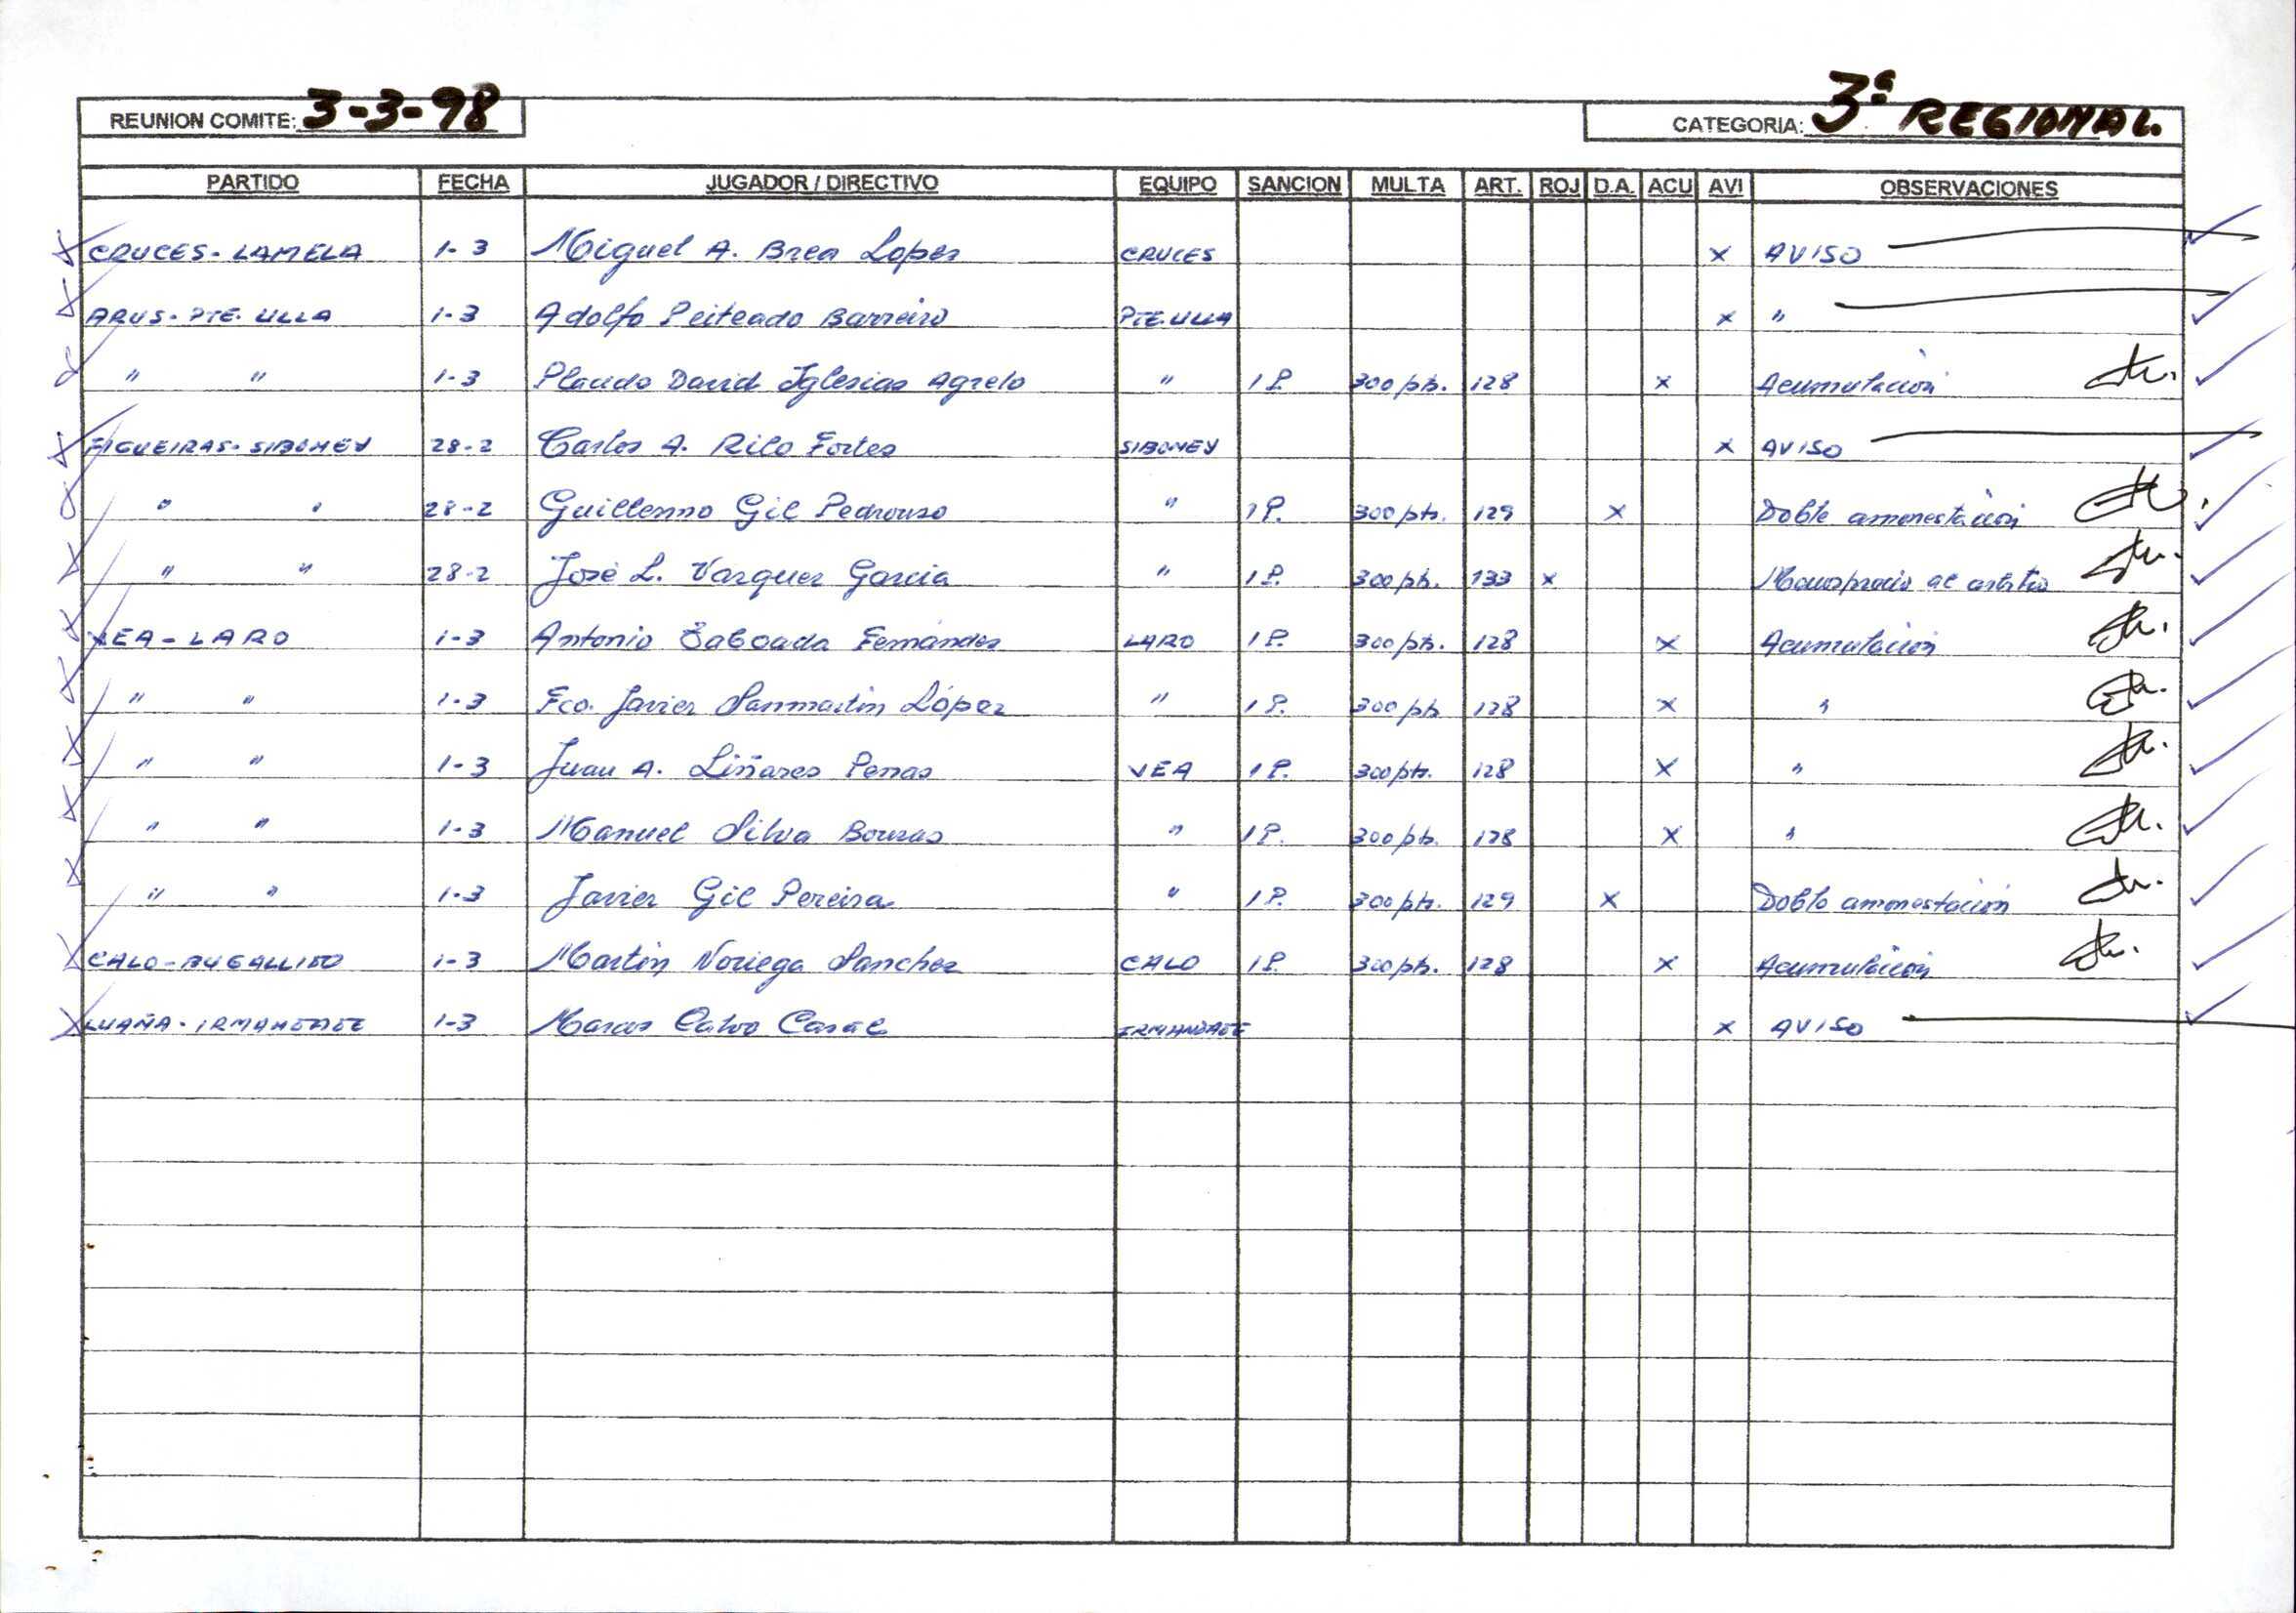 REUNION COMITE: 3-3-98 CATEGORIA: 3ª REGIONAL.
PARTIDO FECHA JUGADOR / DIRECTIVO EQUIPO SANCION MULTA ART. ROJ D.A. ACU AVI OBSERVACIONES
CRUCES - LAMELA 1-3 Miguel A. Brea Lopez CRUCES x AVISO
ARUS - PTE. ULLA 1-3 Adolfo Peiteado Barreiro PTE. ULLA x "
" " 1-3 Placido David Iglesias Agrelo " 1 P. 300 pts. 128 x Acumulación
FIGUEIRAS - SIBONEY 28-2 Carlos A. Rilo Fortes SIBONEY x AVISO
" " 28-2 Guillermo Gil Pedrouso " 1 P. 300 pts. 129 x Doble amonestación
" " 28-2 José L. Vazquez Garcia " 1 P. 300 pts. 133 x Menosprecio al arbitro
VEA - LARO 1-3 Antonio Taboada Fernández LARO 1 P. 300 pts. 128 x Acumulación
" " 1-3 Fco. Javier Sanmartin López " 1 P. 300 pts 128 x "
" " 1-3 Juan A. Liñares Penas VEA 1 P. 300 pts. 128 x "
" " 1-3 Manuel Silva Bouzas " 1 P. 300 pts. 128 x "
" " 1-3 Javier Gil Pereira " 1 P. 300 pts. 129 x Doble amonestación
CALO - BUGALLIDO 1-3 Martín Noriega Sanchez CALO 1 P. 300 pts. 128 x Acumulación
LUAÑA - IRMANDADE 1-3 Marcos Calvo Casal IRMANDADE x AVISO